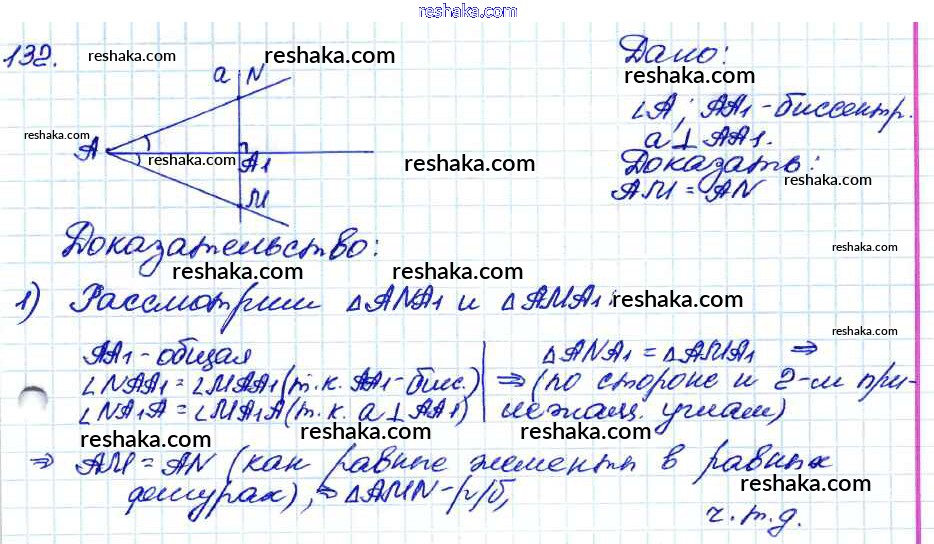 reshaka.com
132.
reshaka.com
reshaka.com
Дано:
a N
reshaka.com
∠A; AA1 - биссектр.
reshaka.com
a ⊥ AA1.
A
reshaka.com
A1
reshaka.com
Доказать:
reshaka.com
M
AM = AN
Доказательство:
reshaka.com
reshaka.com
reshaka.com
1) Рассмотрим △ANA1 и △AMA1:
reshaka.com
reshaka.com
AA1 - общая
△ANA1 = △AMA1 ⇒
∠NAA1 = ∠MAA1 (т.к. AA1 - бис.) ⇒ (по стороне и 2-м при-
∠NA1A = ∠MA1A (т.к. a ⊥ AA1) лежащ. углам)
reshaka.com
reshaka.com
reshaka.com
⇒ AM = AN (как равные элементы в равных
фигурах), ⇒ △AMN - р/б,
reshaka.com
reshaka.com
reshaka.com
ч.т.д.